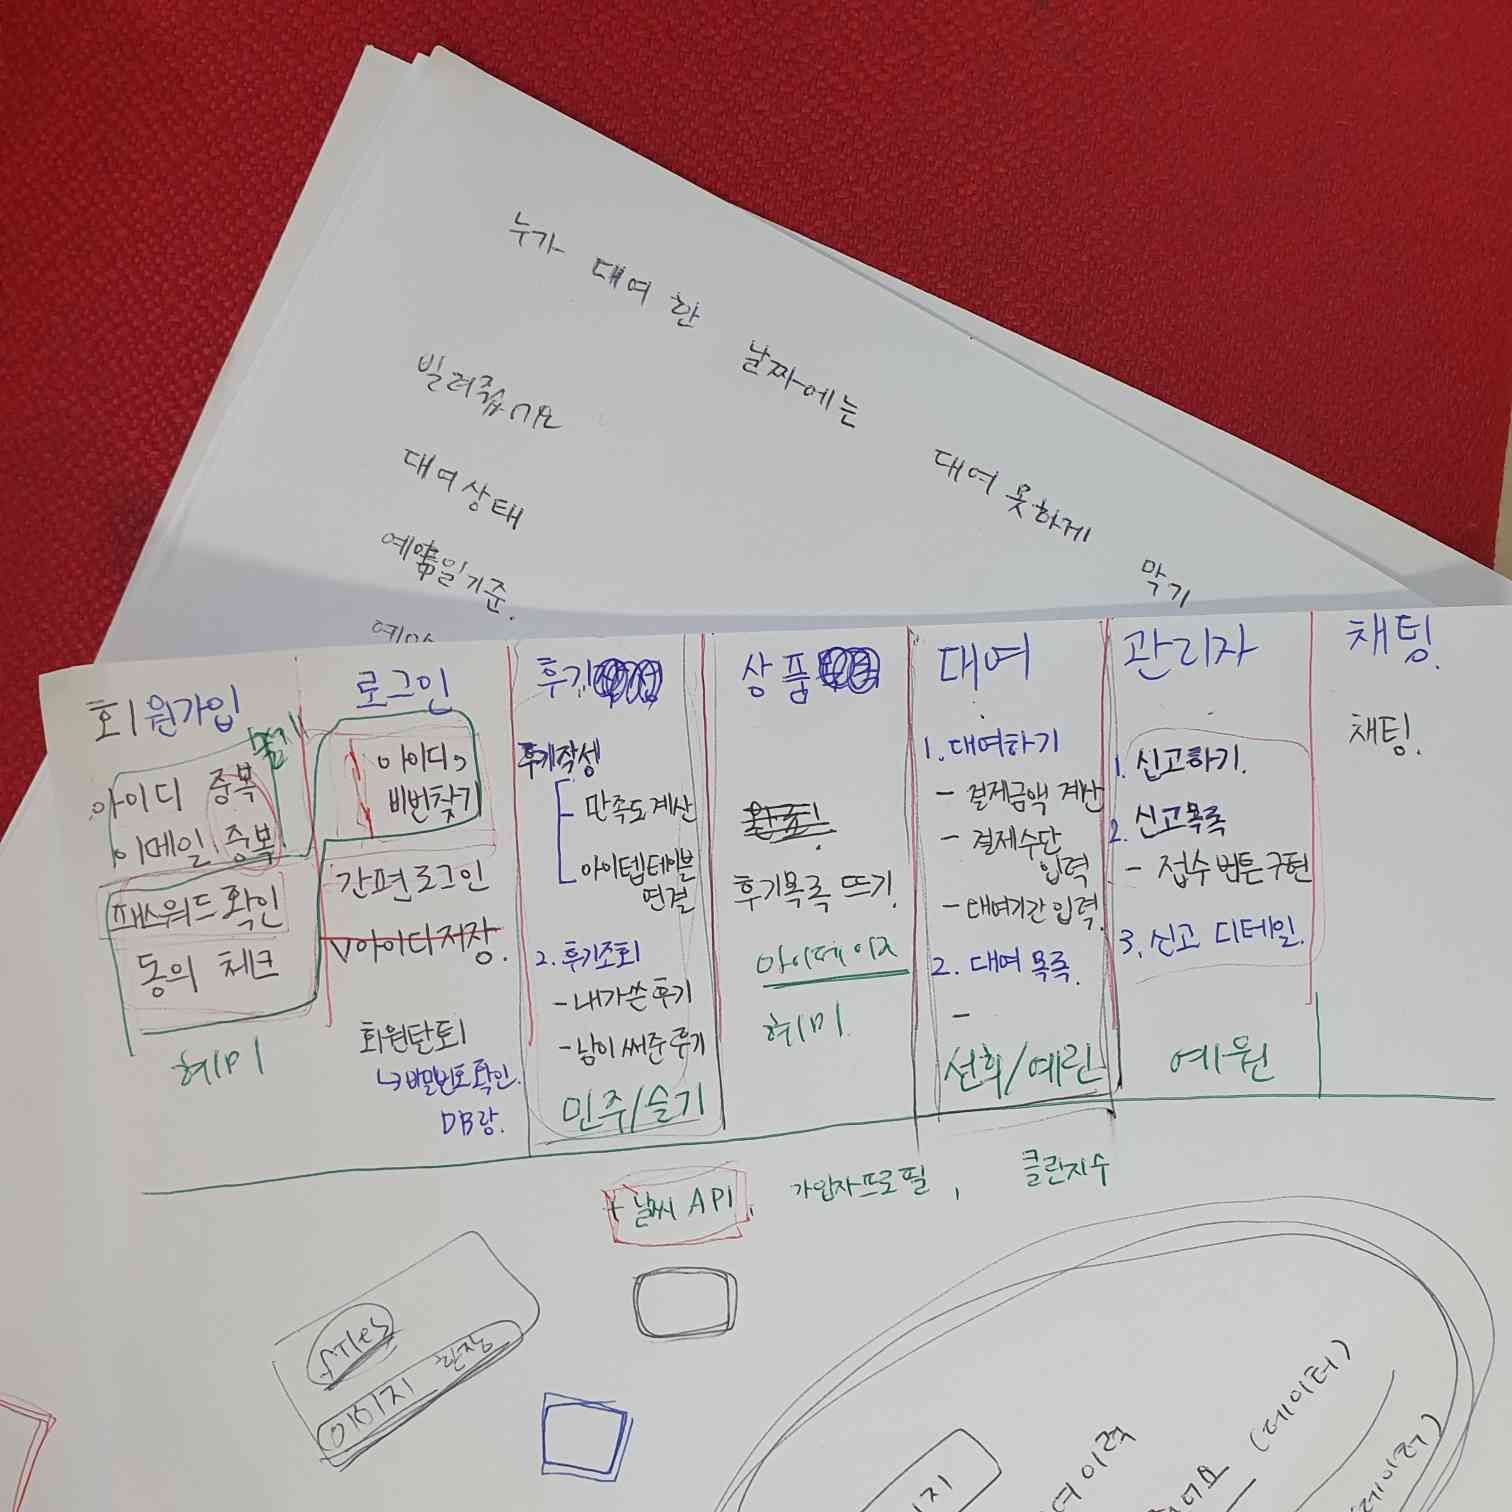 누가 대여 한 날짜에는 대여 못하게 막기
대여상태
회원가입
아이디 중복
이메일 중복
패스워드 확인
동의 체크
혀미
로그인
아이디,
비번찾기
간편로그인
V아이디저장.
회원탈퇴
↳비밀번호확인.
DB랑.
후기
후기작성
- 만족도계산
- 아이템테이블
연결
2. 후기조회
- 내가쓴후기
- 남이써준후기
민주/슬기
상품
후기목록 뜨기.
마이페이지
혀미.
대여
1. 대여하기
- 결제금액 계산
- 결제수단
입력
- 대여기간입력.
2. 대여 목록
-
선희/예린
관리자
1. 신고하기.
2. 신고목록
- 접수버튼구현
3. 신고 디테일.
예원
채팅.
채팅.
+ 날씨 API, 가입자프로필, 클린지수
files
이미지 한장
(데이터)